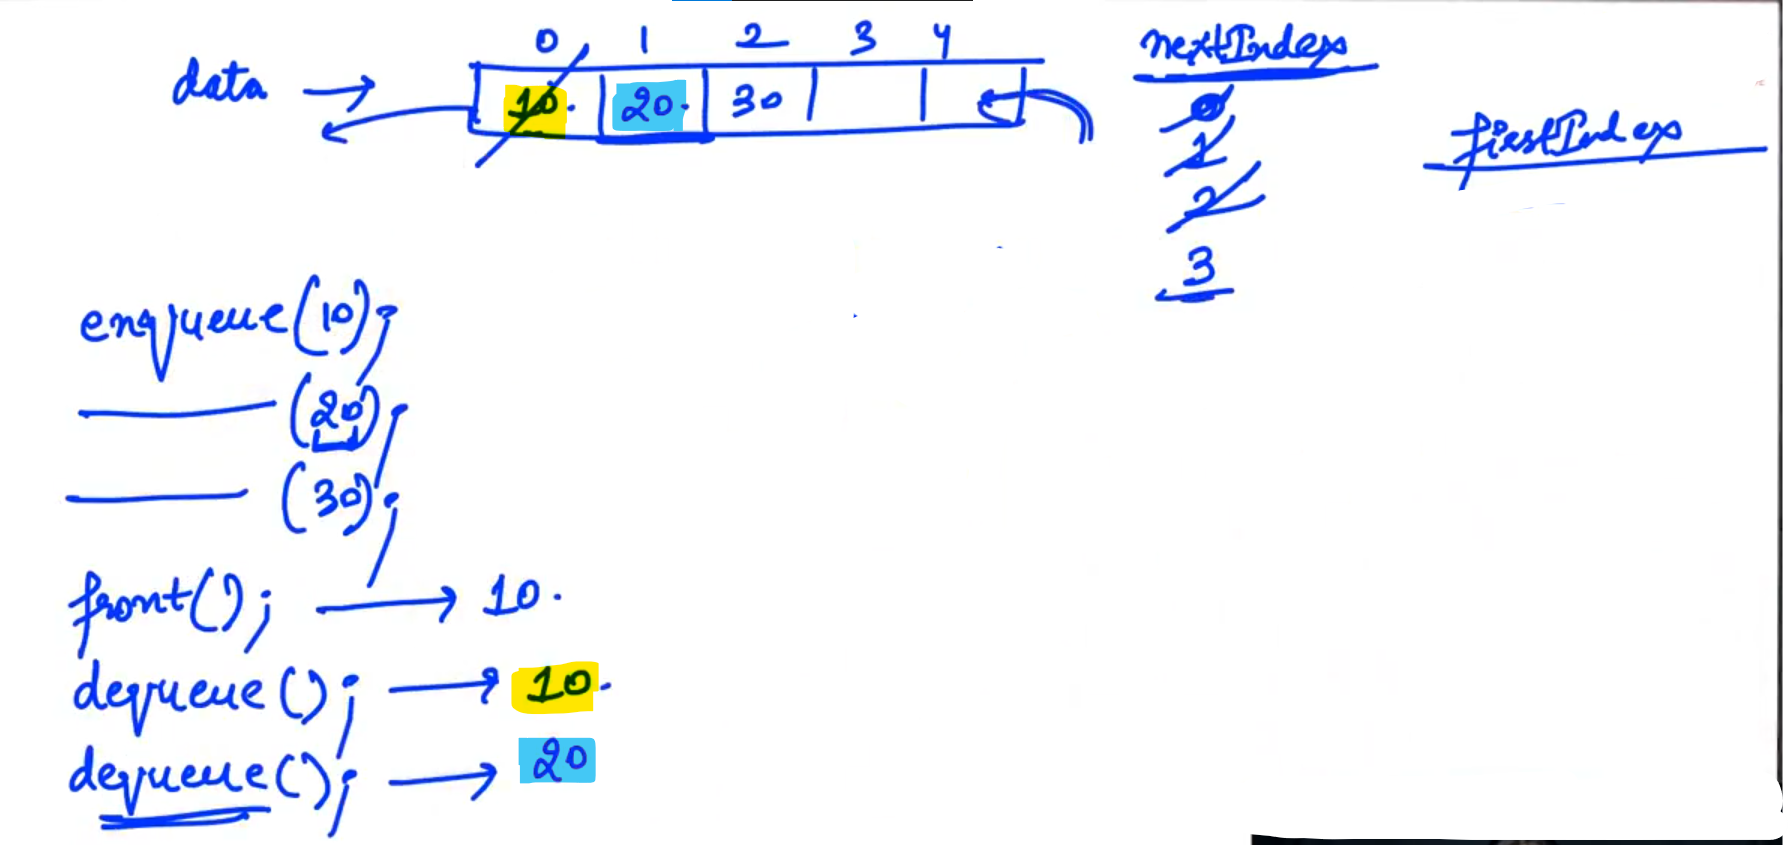 0 1 2 3 4
data → 10. 20. 30
nextIndex
0
1
2
3
firstIndex
enqueue(10);
(20);
(30);
front(); → 10.
dequeue(); → 10.
dequeue(); → 20